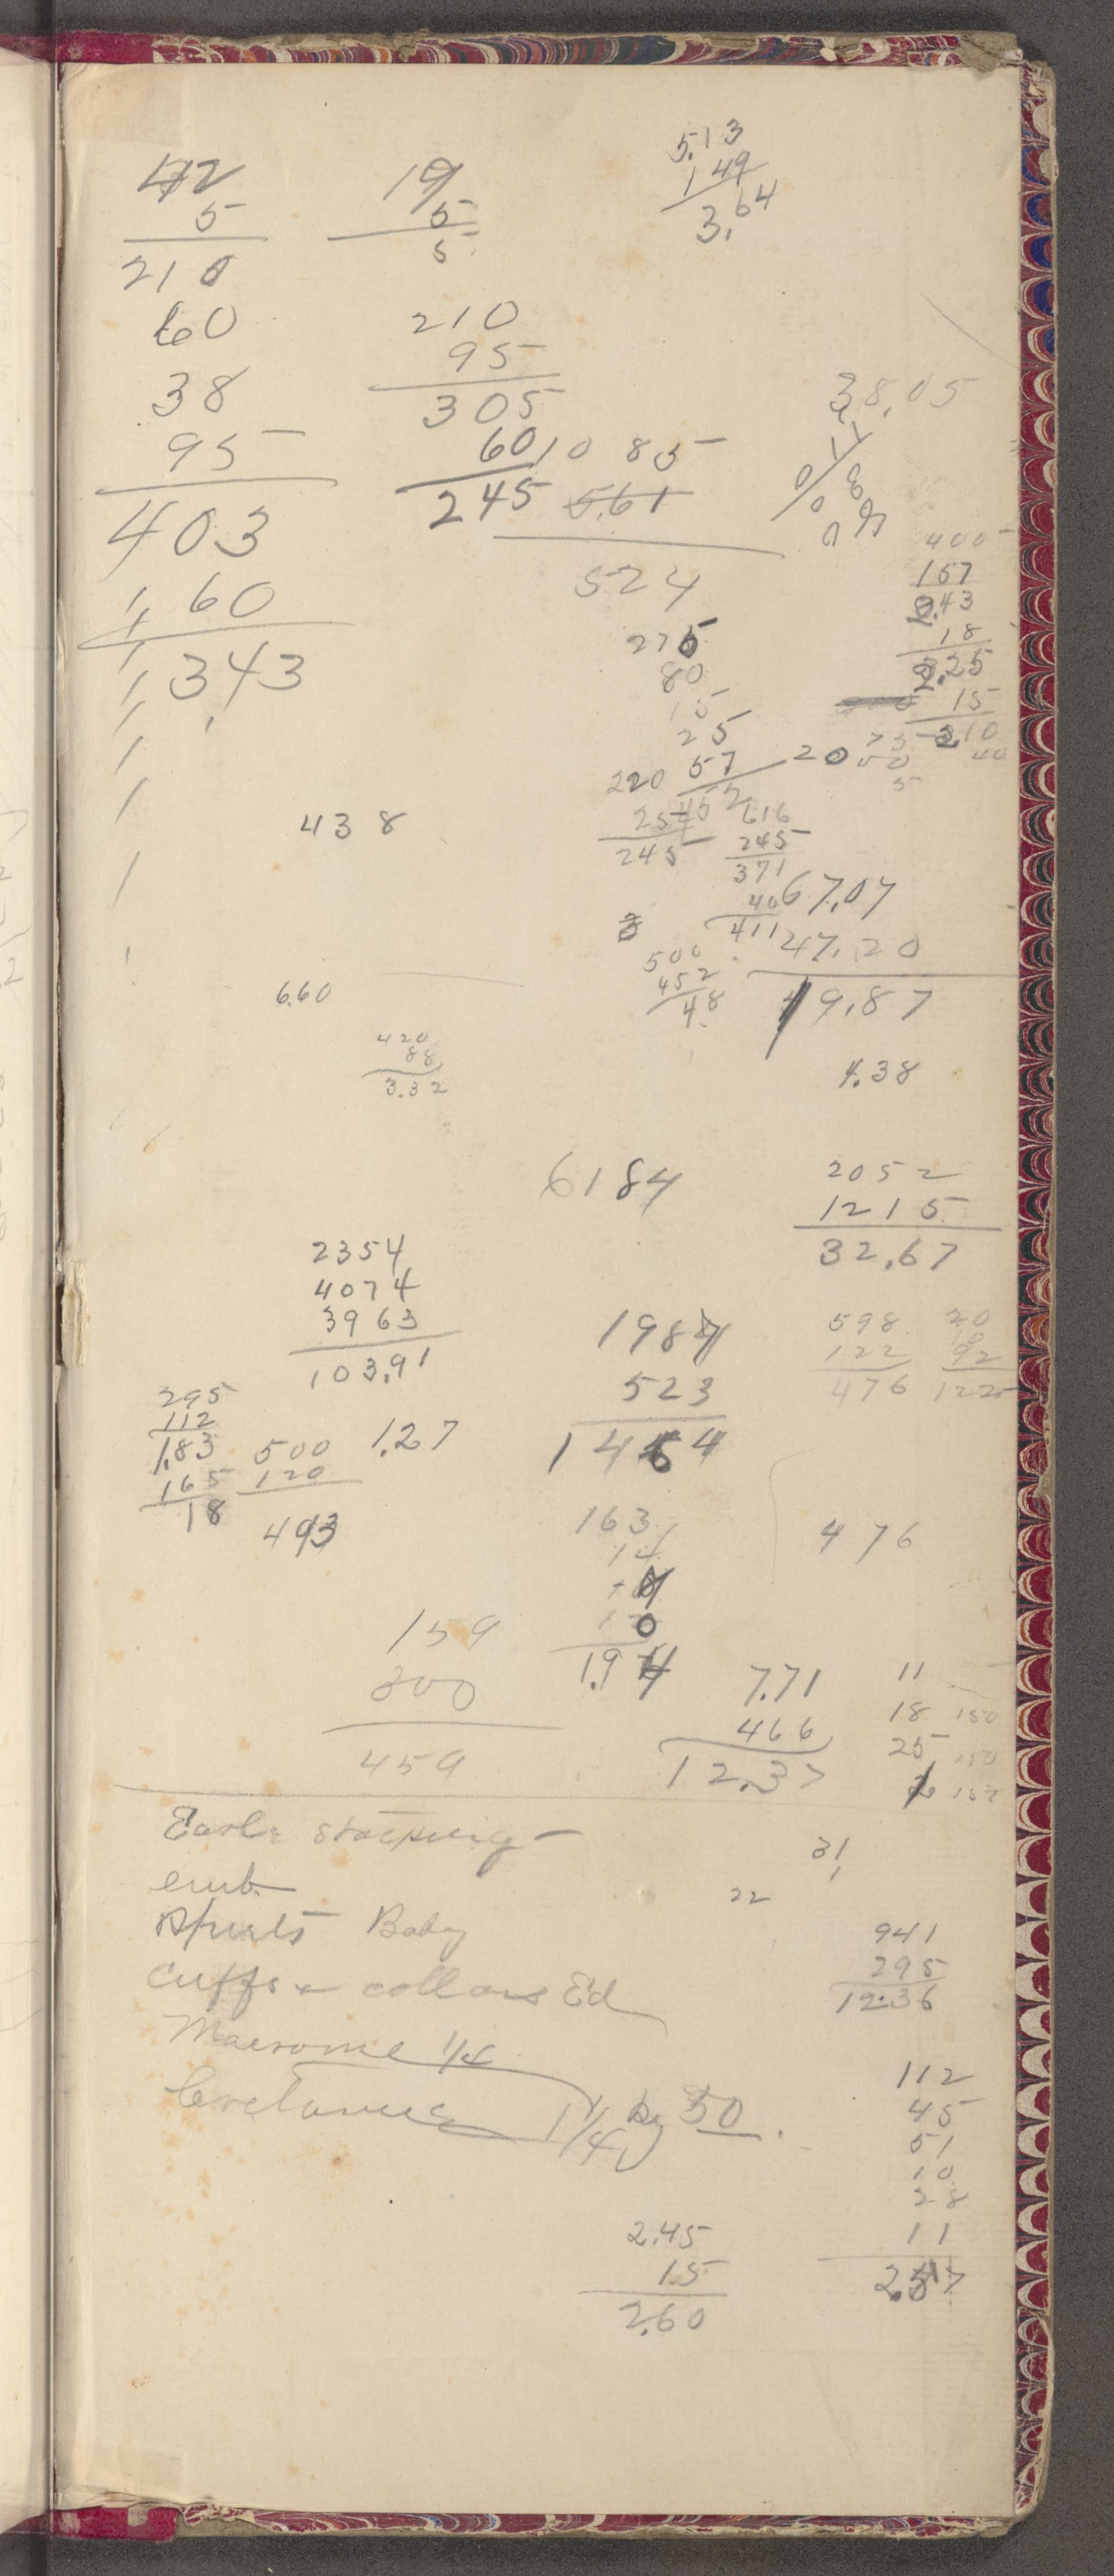 42
5
210
60
38
95
403
60
343
19
5
5
210
95
305
60
245
5.13
149
3.64
10 85
5.61
524
38.05
400
157
2.43
18
2.25
15
2.10
40
275
80
15
25
57
452
20
220
25
245
616
245
371
40
411
438
67.07
47.20
19.87
500
452
48
6.60
420
88
3.32
4.38
6184
2052
1215
32.67
2354
4074
3963
103.91
1987
523
1464
598
122
476
20
10
92
122
295
112
1.83
165
18
500
120
493
1.27
163
14
10
1.94
476
159
300
459
7.71
466
12.37
11
18 150
25 150
150
emb.
Baby
cuffs & collars Ed
1/4
1 1/4 by 50
31
22
941
295
12.36
112
45
51
10
28
11
2.57
2.45
15
2.60